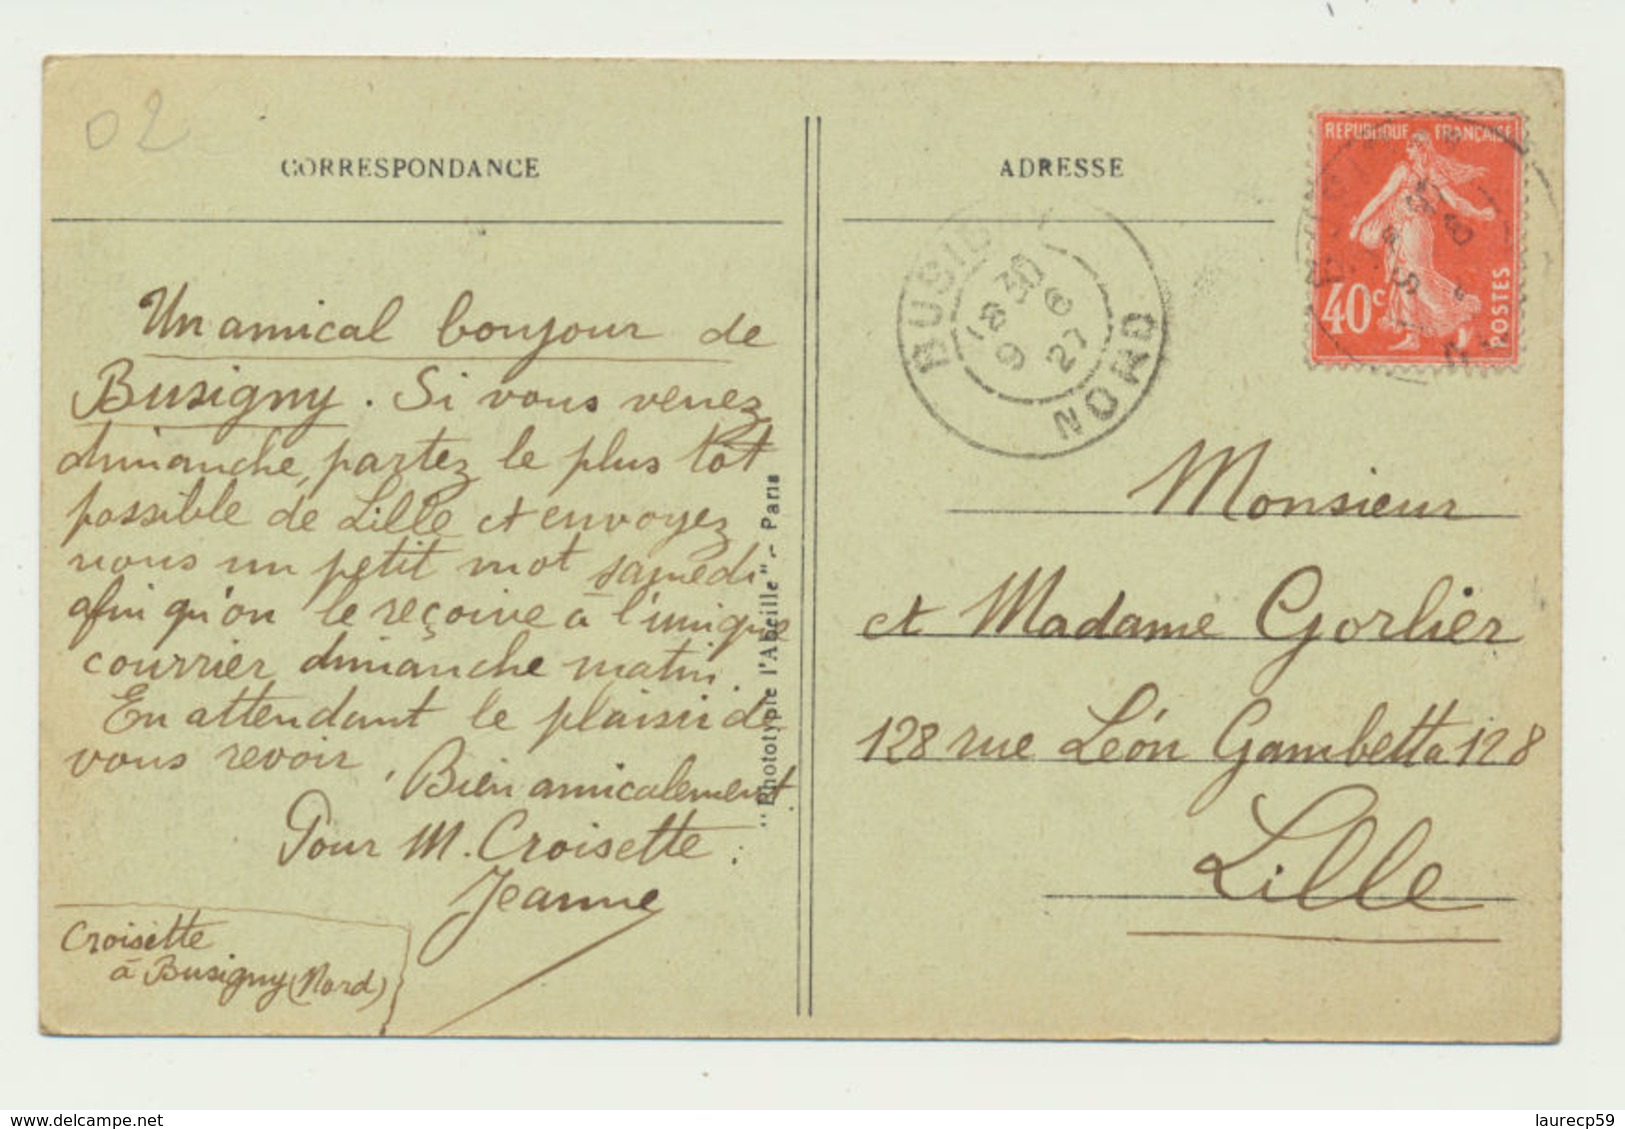 02
CORRESPONDANCE
Un amical bonjour de
Busigny. Si vous venez
dimanche, partez le plus tôt
possible de Lille et envoyez
nous un petit mot samedi
afin qu'on le reçoive à l'unique
courrier dimanche matin.
En attendant le plaisir de
vous revoir, Bien amicalement.
Pour M. Croisette.
Jeanne
Croisette
à Busigny (Nord)
"Phototypie l'Abeille" - Paris
ADRESSE
BUSIG
18 30
9 6
27
NORD
REPUBLIQUE FRANÇAISE
40c
POSTES
Monsieur
et Madame Gorlier
128 rue Léon Gambetta 128
Lille
www.delcampe.net
laurecp59